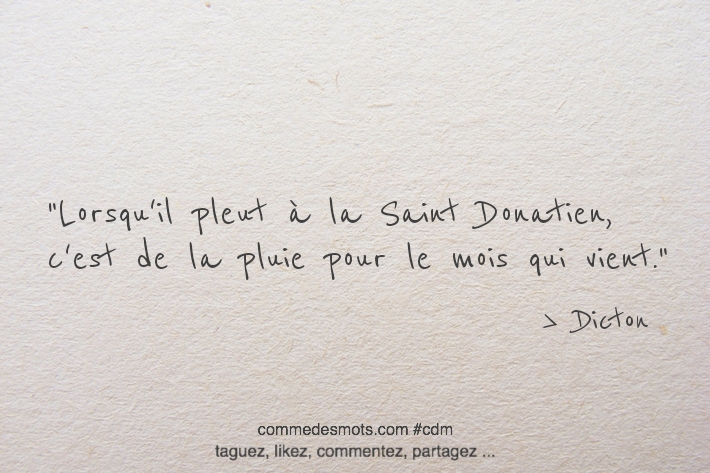 "Lorsqu'il pleut à la Saint Donatien,
c'est de la pluie pour le mois qui vient."
> Dicton
commedesmots.com #cdm
taguez, likez, commentez, partagez ...